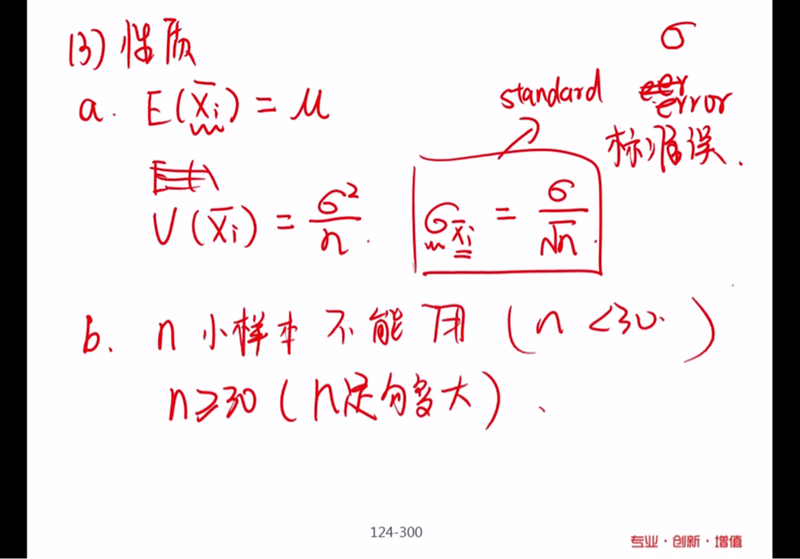 (3) 性质
a. E(X̄i) = μ
V(X̄i) = σ²/n.
σX̄i = σ/√n.
standard error
σ
标准误.
b. n 小样本 不能用 (n<30.)
n≥30 (n足够多大).
124-300
专业·创新·增值